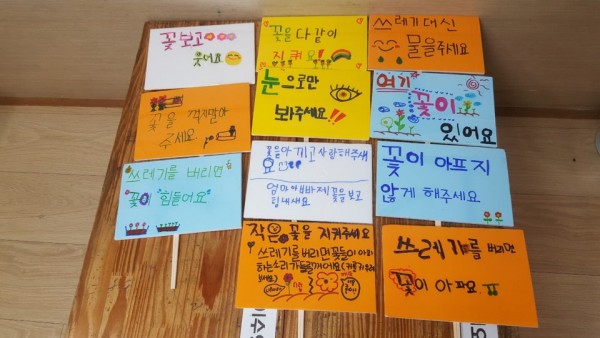 꽃보고
웃어요
꽃을 다같이
지켜요!
쓰레기대신
물을주세요
꽃을 꺾지말아
주세요
눈으로만
봐주세요!!
여기
꽃이
있어요
쓰레기를 버리면
꽃이 "힘들어요"
꽃을아끼고사랑해주세
요
엄마아빠제꽃을보고
힘내세요
꽃이 아프지
않게 해주세요
작은 꽃을 지켜주세요
쓰레기를버리면꽃들이아파
하는소리가들릴꺼에요
쓰레기를 버리면
꽃이 아파요.